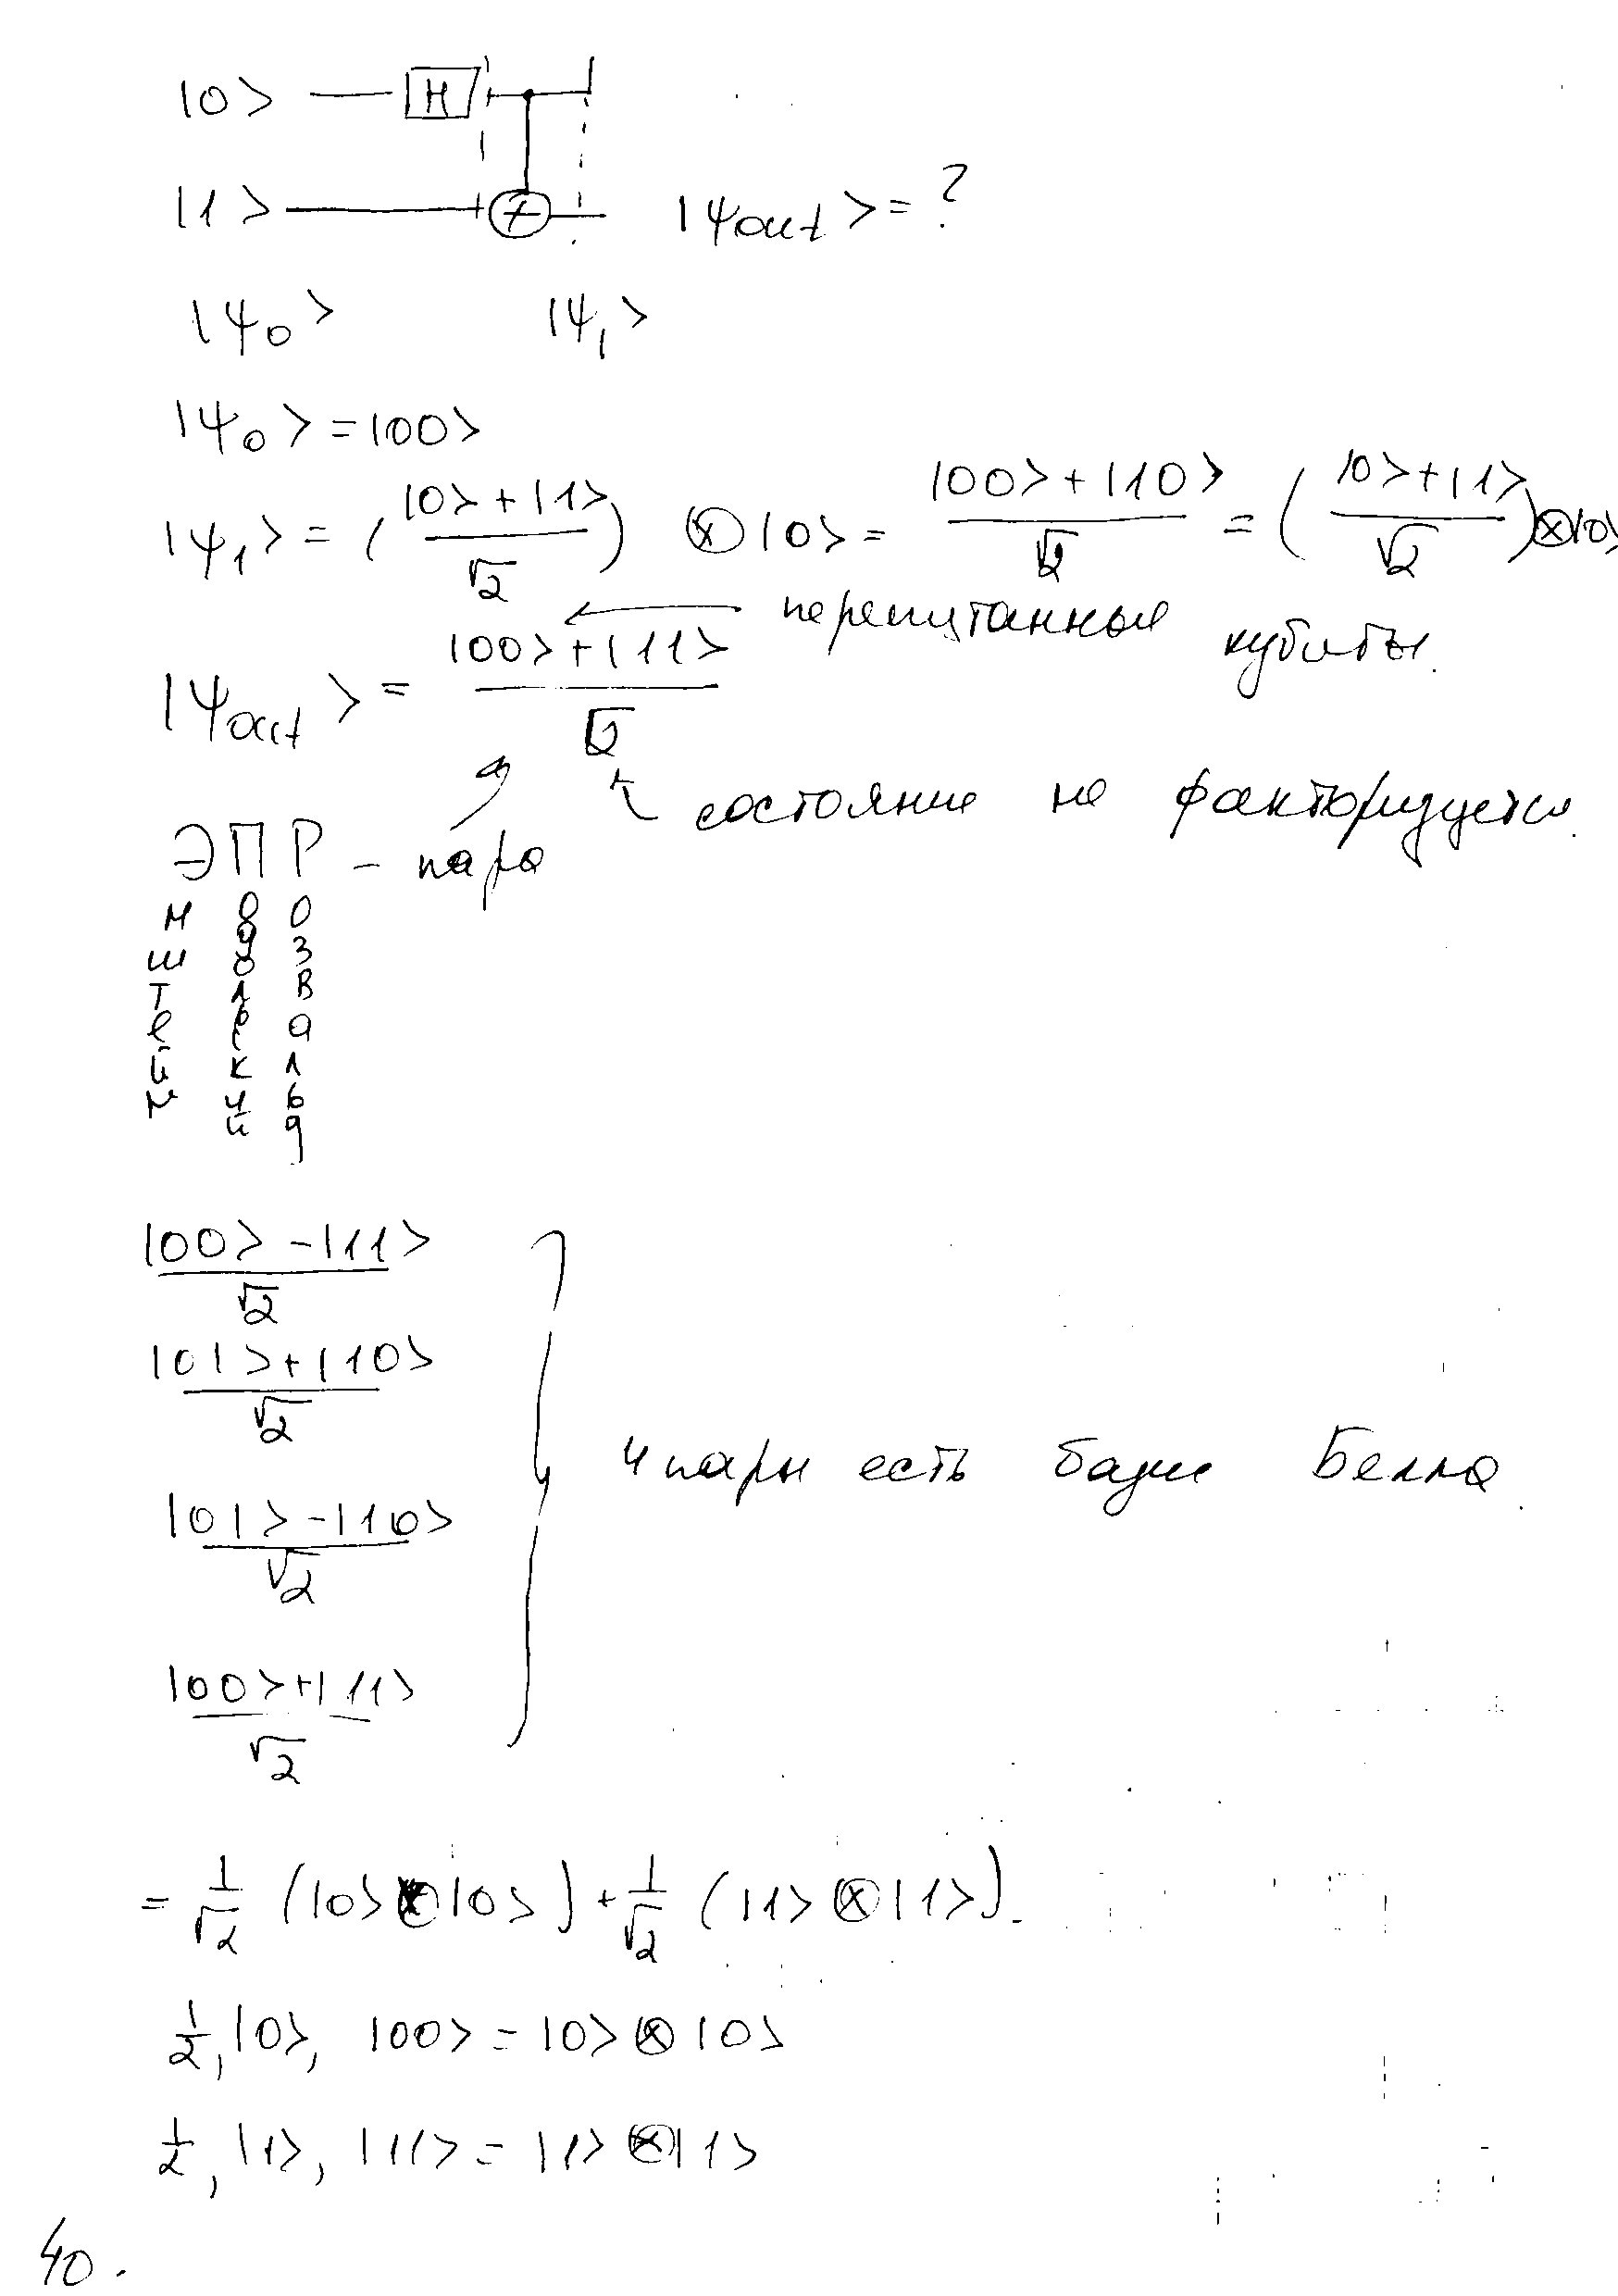 |0> — H
|1> |ψout> = ?
|ψ0> |ψ1>
|ψ0> = |00>
|ψ1> = (|0> + |1> / √2) ⊗ |0> = |00> + |10> / √2 = (|0> + |1> / √2) ⊗ |0>
|ψout> = |00> + |11> / √2 ← перепутанные кубиты.
состояние не факторизуется.
ЭПР - пара
Эйнштейн
Подольский
Розен
|00> - |11> / √2
|01> + |10> / √2
|01> - |10> / √2
|00> + |11> / √2
4 пары есть базис Белла.
= 1/√2 (|0> ⊗ |0>) + 1/√2 (|1> ⊗ |1>).
1/2, |0>, |00> = |0> ⊗ |0>
1/2, |1>, |11> = |1> ⊗ |1>
40.